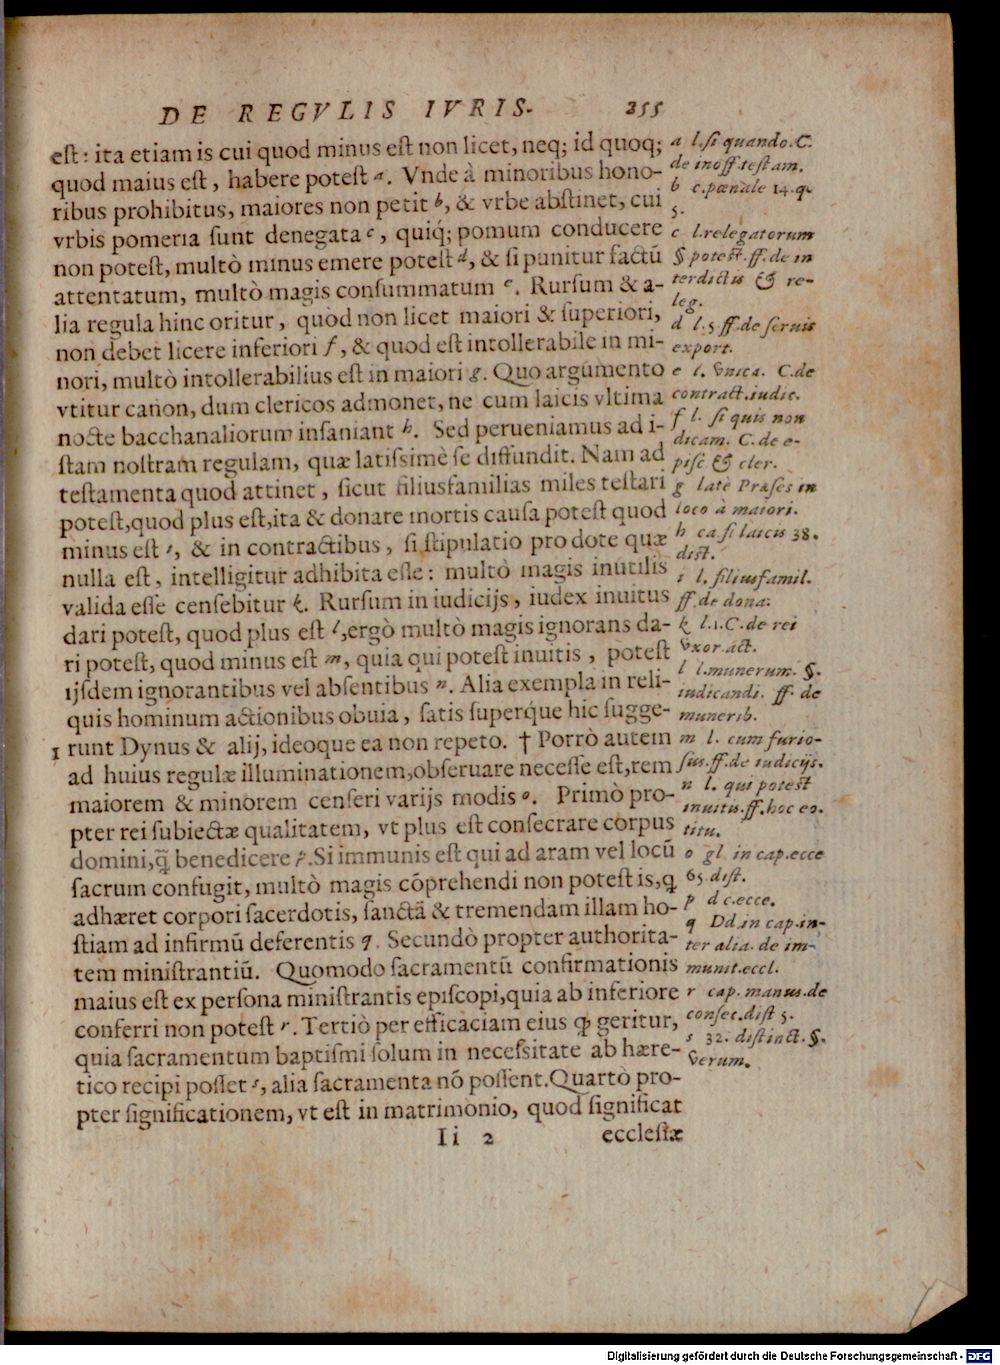 DE REGVLIS IVRIS. 255
est: ita etiam is cui quod minus est non licet, neq; id quoq;
quod maius est, habere potest a. Vnde à minoribus hono-
ribus prohibitus, maiores non petit b, & vrbe abstinet, cui
vrbis pomeria sunt denegata c, quiq́; pomum conducere
non potest, multò minus emere potest d, & si punitur factũ
attentatum, multò magis consummatum e. Rursum & a-
lia regula hinc oritur, quòd non licet maiori & superiori,
non debet licere inferiori f, & quod est intollerabile in mi-
nori, multò intollerabilius est in maiori g. Quo argumento
vtitur canon, dum clericos admonet, ne cum laicis vltima
nocte bacchanaliorum insaniant h. Sed perueniamus ad i-
stam nostram regulam, quæ latissimè se diffundit. Nam ad
testamenta quod attinet, sicut filiusfamilias miles testari
potest,quod plus est,ita & donare mortis causa potest quod
minus est i, & in contractibus, si stipulatio pro dote quæ
nulla est, intelligitur adhibita esse: multò magis inutilis
valida esse censebitur k. Rursum in iudicijs, iudex inuitus
dari potest, quod plus est l,ergò multò magis ignorans da-
ri potest, quod minus est m, quia qui potest inuitis, potest
ijsdem ignorantibus vel absentibus n. Alia exempla in reli-
quis hominum actionibus obuia, satis superq́ue hic sugge-
1 runt Dynus & alij, ideoque ea non repeto. † Porrò autem
ad huius regulæ illuminationem,obseruare necesse est,rem
maiorem & minorem censeri varijs modis o. Primò pro-
pter rei subiectæ qualitatem, vt plus est consecrare corpus
domini,q̃ benedicere p. Si immunis est qui ad aram vel locũ
sacrum confugit, multò magis cõprehendi non potest is,q
adhæret corpori sacerdotis, sanctã & tremendam illam ho-
stiam ad infirmũ deferentis q. Secundò propter authorita-
tem ministrantiũ. Quomodo sacramentũ confirmationis
maius est ex persona ministrantis episcopi,quia ab inferiore
conferri non potest r. Tertiò per efficaciam eius ꝙ geritur,
quia sacramentum baptismi solum in necessitate ab hære-
tico recipi posset s, alia sacramenta nõ possent. Quartò pro-
pter significationem, vt est in matrimonio, quod significat
Ii 2 ecclesiæ
a l. si quando. C.
de inoff. testam.
b c. pœnale 14. q.
5.
c l. relegatorum
§ potest. ff. de in
terdictis & re-
leg.
d l. 5 ff. de seruis
export.
e l. vnica. C. de
contract. iudic.
f l. si quis non
dicam. C. de e-
pisc & cler.
g latè Præses in
loco à maiori.
h ca si laicis 38.
dist.
i l. filiusfamil.
ff. de dona:
k l. 1. C. de rei
vxor. act.
l l. munerum. §.
iudicandi. ff. de
munerib.
m l. cum furio-
sus. ff. de iudicijs.
n l. qui potest
inuitis. ff. hoc eo.
titu.
o gl in cap. ecce
65. dist.
p d c. ecce.
q Dd. in cap. in-
ter alia. de im-
munit. eccl.
r cap. manus. de
consec. dist 5.
s 32. distinct. §.
verum.
Digitalisierung gefördert durch die Deutsche Forschungsgemeinschaft - DFG